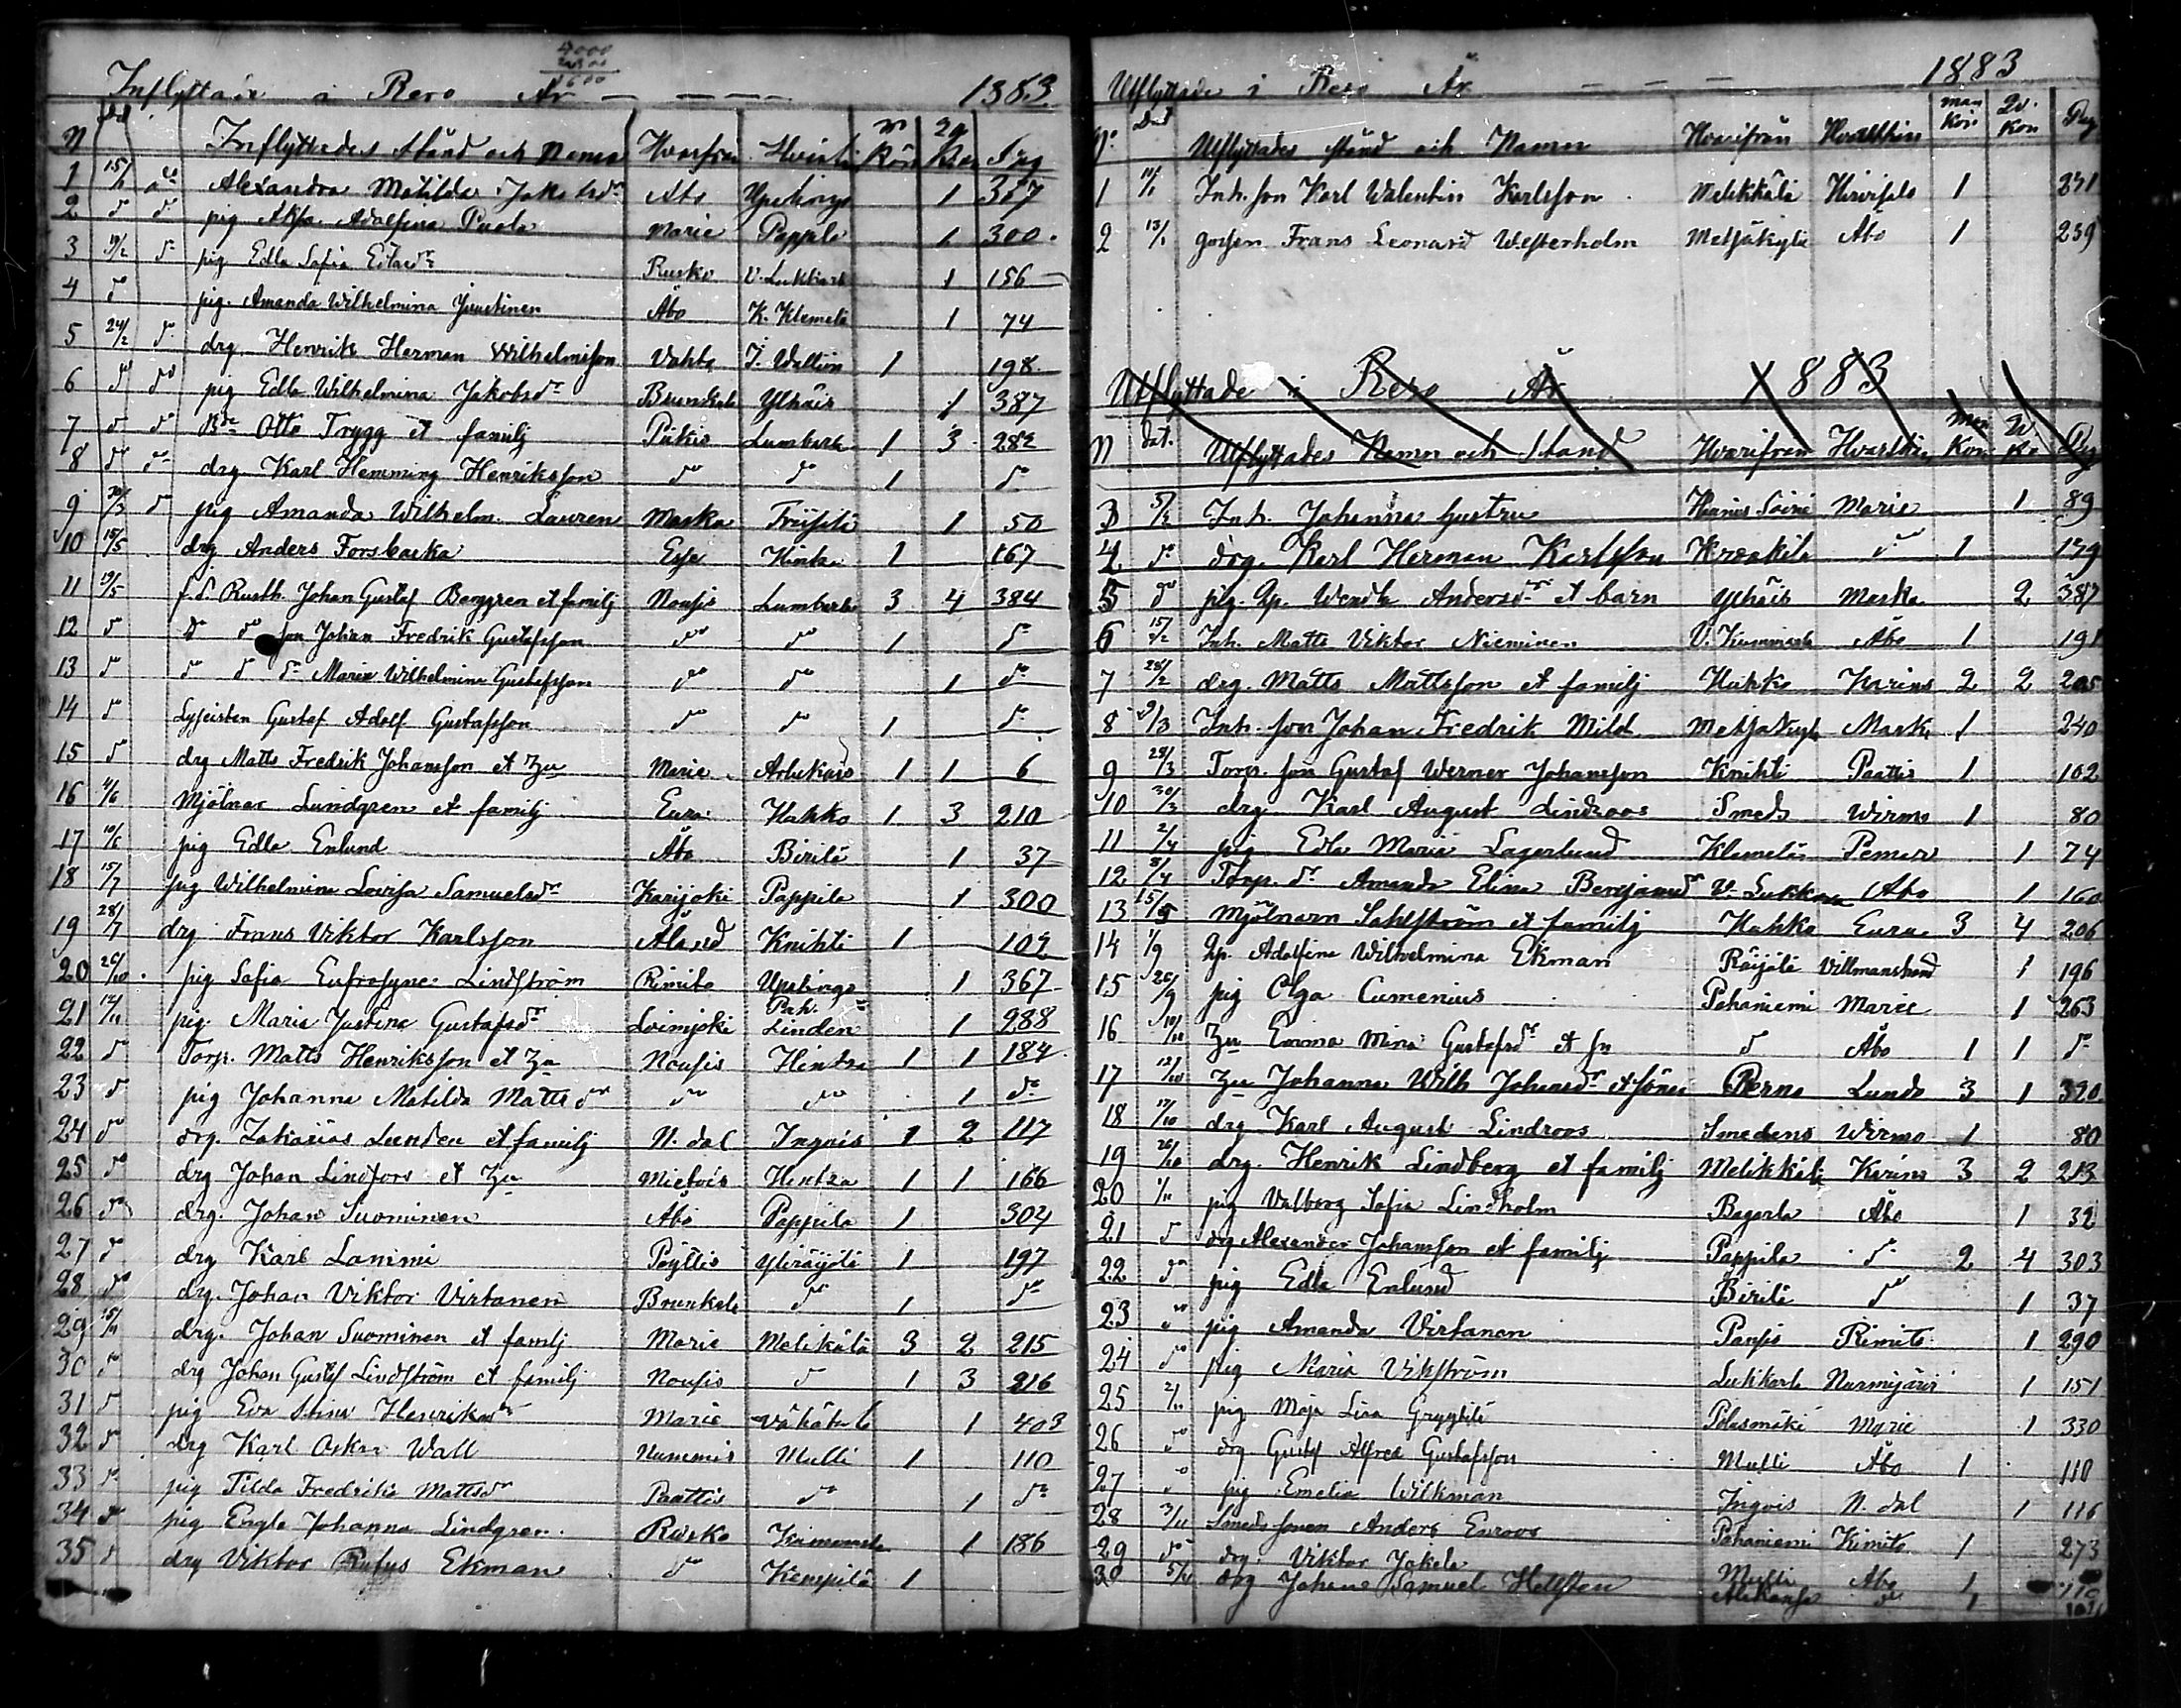 4000
1600
Inflyttade i Reso År — — — — 1883
N Dat Inflyttades Stånd och Namn Hvarifrån Hvarthin m Kön Qv Kön Pag
1 15/1 Alexandra Matilda Jakobsdr Åbo Upalinge 1 367
2 do do pig Adolfina Marie Pappila 1 300
3 19/2 do pig Edla Sofia Rusko 1 156
4 do pig. Amanda Wilhelmina Juustinen Åbo K. Klemelä 1 74
5 24/2 do drg Henrik Herman Wilhelmsson Vahto 1 198
6 do do pig Edla Wilhelmina Jakobsdr Brunkala Ylhäis 1 387
7 do do Otto Trygg et familj Pikis Lumbarla 1 3 282
8 do do drg Karl Hemming Henriksson do do 1 do
9 do pig Amanda Wilhelm. Lauren Masku 1 50
10 15/5 drg Anders Forsbacka Hintza 1 167
11 19/5 f.d. Rusth. Johan Gustaf Berggren et familj Nousis Lumbarla 3 4 384
12 do do do son Johan Fredrik Gustafsson do do 1 do
13 do do do do Maria Wilhelmina Gustafsson do do 1 do
14 do Lyseisten Gustaf Adolf Gustafsson do do 1 do
15 do drg Matts Fredrik Johansson et hu Marie 1 1 6
16 4/6 Mjölnar Lundgren et familj Eura Hakko 1 3 210
17 10/6 pig Edla Enlund Åbo Birilä 1 37
18 15/7 pig Wilhelmina Lovisa Samuelsdr Karijoki Pappila 1 300
19 28/7 drg Frans Viktor Karlsson Åland Knihti 1 102
20 26/10 pig Sofia Eufrosyne Lindström Rimito Upalinge 1 367
21 12/11 pig. Maria Justina Gustafsdr Loimjoki Pah. Linden 1 288
22 do Torp. Matts Henriksson et hu Nousis Hintza 1 1 184
23 do pig Johanna Matilda Matts dr do do 1 do
24 do drg. Zakarias Lunden et familj N. dal Ingois 1 2 117
25 do drg Johan Lindfors et hu Mietois Hintza 1 1 166
26 do drg. Johan Suominen Åbo Pappila 1 304
27 do drg Karl Lammi Pöytis Yliräijölä 1 197
28 do drg. Johan Viktor Virtanen Brunkala do 1 do
29 15/11 drg. Johan Suominen et familj Marie Melikälä 3 2 215
30 do drg Johan Gustaf Lindström et familj Nousis do 1 3 216
31 do pig Eva Stina Henriksdr Marie Vähätalo 1 403
32 do drg Karl Oskar Wall Nummis Mulli 1 110
33 do pig Tilda Fredrika Mattsdr Paattis do 1 do
34 do pig Engla Johanna Lindgren Rusko 1 186
35 do drg Viktor Rufus Ekman do Kempilä 1
Utflyttade i Reso År — — — 1883
No Dat Utflyttades stånd och Namn Hvarifrån Hvarthin man kön Qv. kön Pag
1 Inh. son Karl Walentin Karlsson Melikkälä Hirvisalo 1 231
2 13/1 gossen Frans Leonard Westerholm Metsäkylä Åbo 1 239
Utflyttade i Reso År 1883
N dat. Utflyttades Namn och Stånd Hvarifrån Hvarthin man Kön Qv Kö Pag
3 5/2 Inh. Johanna Marie 1 89
4 do drg. Karl Herman Karlsson do 1 179
5 do pig. Qp. Wendla Andersdr et barn Ylhäis Masku 2 387
6 15/2 Inh. Matts Viktor Nieminen Åbo 1 191
7 28/2 drg. Matts Mattsson et familj Hakko Karins 2 2 205
8 9/3 Inh. son Johan Fredrik Mild Metsäkylä Masku 1 240
9 28/3 Torp. son Gustaf Werner Johansson Knihti Paattis 1 102
10 30/3 drg Karl August Lindroos Smeds Wirmo 1 80
11 2/4 pig Edla Maria Lagerlund Klemelä Pemar 1 74
12 8/4 Torp. dr Amanda Elina Benjamdr V. Lukkarla Åbo 1 160
13 15/5 Mjölnarn Sahlström et familj Hakko Eura 3 4 206
14 1/9 Qp. Adolfina Wilhelmina Ekman Räijälä Villmanstrand 1 196
15 26/9 pig Olga Cumenius Pahaniemi Marie 1 263
16 10/10 hu Emma Mina Gustafsdr et sn do Åbo 1 1 do
17 12/10 hu Johanna Wilh Johansdr et söner Perno Lundo 3 1 320
18 17/10 drg Karl August Lindroos Smedens Wirmo 1 80
19 26/10 drg. Henrik Lindberg et familj Melikkälä Karins 3 2 213
20 1/11 pig Valborg Sofia Lindholm Bagarla Åbo 1 32
21 do drg Alexander Johansson et familj Pappila do 2 4 303
22 do pig Edla Enlund Birilä do 1 37
23 do pig Amanda Virtanen Pansis Rimito 1 290
24 do pig Maria Vikström Lukkarla Nurmijärvi 1 151
25 2/11 pig Maja Lisa Grygilä Palusmäki Marie 1 330
26 do drg. Gustaf Alfred Gustafsson Mulli Åbo 1 110
27 do pig. Emelia Wilkman Ingois N. dal 1 116
28 3/11 Smeds sonen Anders Euroos Pahaniemi Kimito 1 273
29 do drg. Viktor Jokela Mulli Åbo 1 110
30 5/11 drg Johan Samuel Hellsten do 1